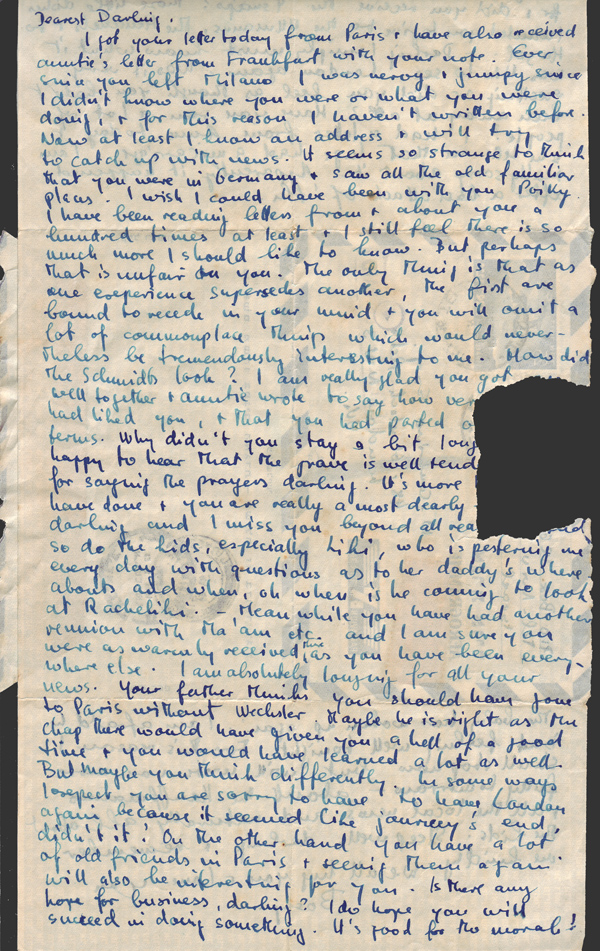 Dearest Darling.
I got your letter today from Paris + have also received
auntie's letter from Frankfurt with your note. Ever
since you left Milano I was nervy & jumpy since
I didn't know where you were or what you were
doing, + for this reason I haven't written before.
Now at least I know an address + will try
to catch up with news. It seems so strange to think
that you were in Germany + saw all the old familiar
places. I wish I could have been with you
I have been reading letters from + about you a
hundred times at least + I still feel there is so
much more I should like to know. But perhaps
that is unfair on you. The only thing is that as
one experience supersedes another, the first are
bound to recede in your mind + you will omit a
lot of commonplace things which would never-
theless be tremendously interesting to me. How did
the Schmidts look? I am really glad you got
well together + auntie wrote to say how
had liked you, + that you had parted
terms. Why didn't you stay a bit
happy to hear that the grave is well
for saying the prayers darling. It's more
have done + you are really a most dearly
darling and I miss you beyond all
so do the kids, especially Liki, who is pestering me
every day with questions as to her daddy's where
abouts and when, oh when is he coming to look
at Racheliki. – Meanwhile you have had another
reunion with Ma'am etc. and I am sure you
were as warmly received there as you have been every-
where else. I am absolutely longing for all your
news. Your father thinks you should have gone
to Paris without Wechsler Maybe he is right as the
chap there would have given you a hell of a good
time + you would have learned a lot as well.
But maybe you think differently. In some ways
I expect you are sorry to have to leave London
again because it seemed like journey's end,
didn't it? On the other hand you have a lot
of old friends in Paris + seeing them again
will also be interesting for you. Is there any
hope for business, darling? I do hope you will
succeed in doing something. It's good for the moral!